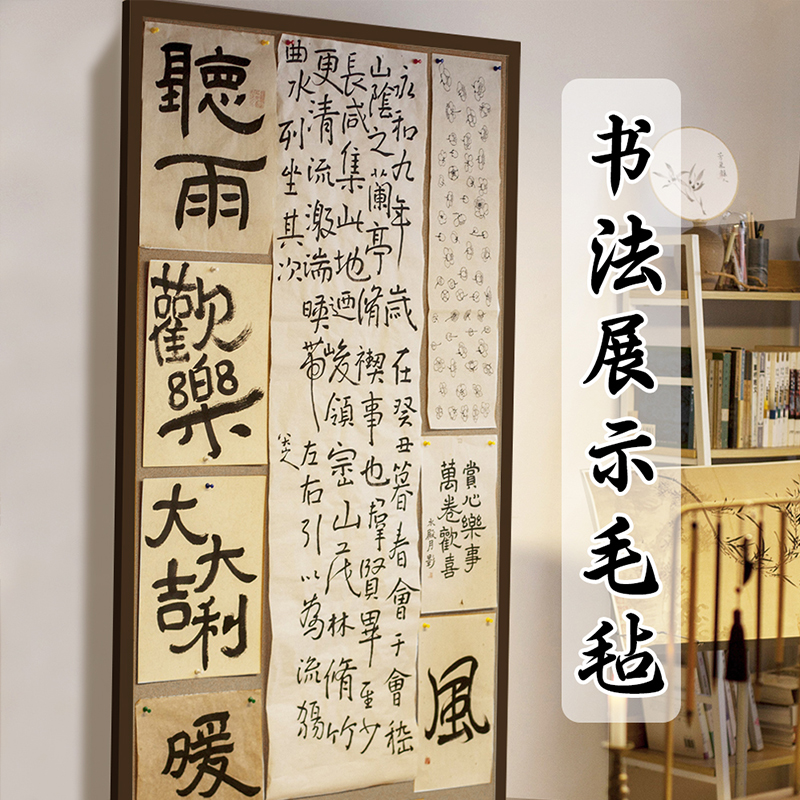 聽
雨
歡
樂
大吉
大利
暖
永和九年歲在癸丑暮春會于會嵇
山陰之蘭亭脩禊事也羣賢畢至少
長咸集此地迺峻領崇山茂林脩竹
更清流激湍暎帶左右引以為流觴
曲水列坐其次
賞心樂事
萬卷歡喜
風
书法展示毛毡